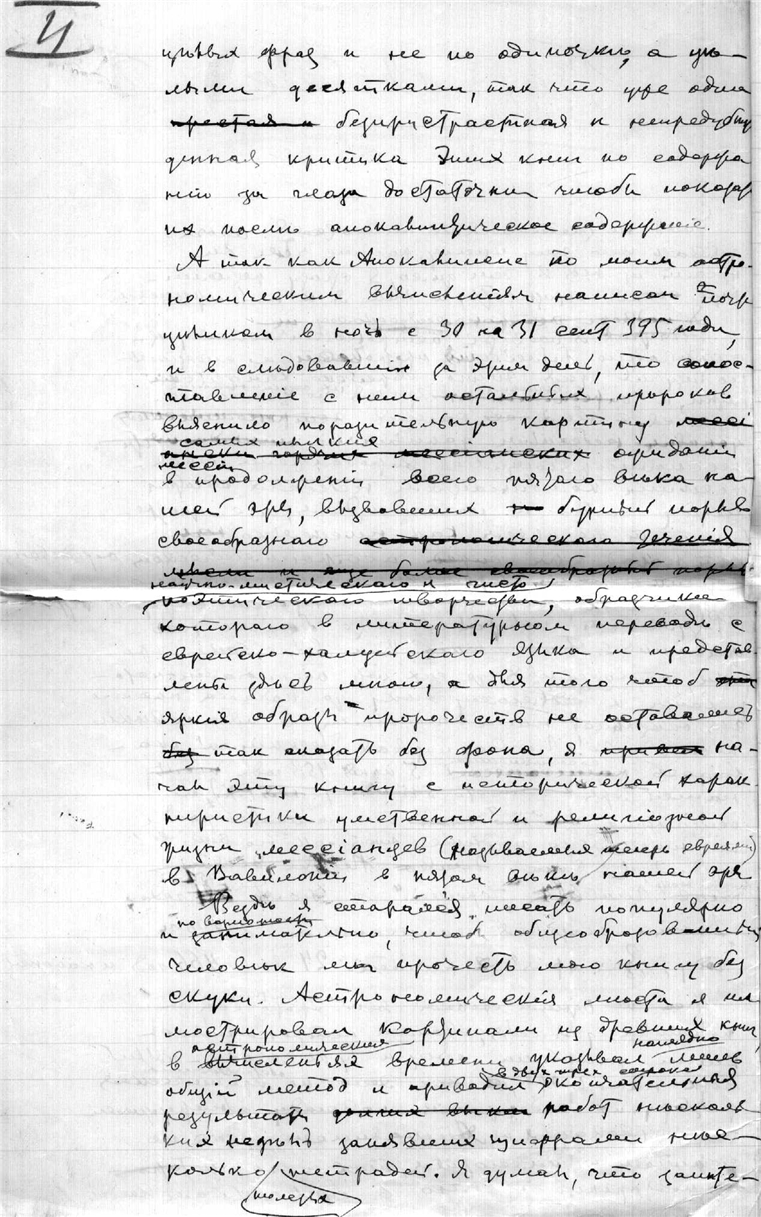 4
цѣлыхъ фраз и не по одиночкѣ, а цѣ-
лыми десятками, так что уже одна
простая и безпристрастная и непредубѣж
денная критика этих книг по содержа
нію за глаза достаточна чтобы показать
их после апокалиптическое содержаніе.
А так как Апокалипсис по моим астро-
номическим вычисленіям написан
в ночь с 30 на 31 сент 395 года,
и в слѣдовавшій за этим день, то сопос-
тавленіе с ним остальных пророков
выяснило поразительную картину
самых пылких
мессіанских ожиданій
мессіи
в продолженіи всего пятаго вѣка на-
шей эры, вызвавших бурный порыв
своеобразнаго астрономического теченія
мысли и еще болѣе своеобразный порыв
научно-мистического и чисто
поэтического творчества, образчики
котораго в литературном переводѣ с
еврейско-халдейскаго языка и представ-
лены здесь мною, а для того чтоб
яркія образы пророчеств не оставались
без так сказать без фона, я на-
чал эту книгу с исторической харак-
теристики умственной и религіозной
жизни мессіанцев (называемых теперь евреями)
в Вавилоніи в пятом вѣкѣ нашей эры
Вездѣ я старался писать популярно
по возможности
и занимательно, чтоб общеобразованный
человѣк мог прочесть мою книгу без
скуки. Астрономическія мѣста я ил-
люстрировал картинами из древних книг,
астрономических наглядно
в вычисленіях времени указывал лишь
в двух-трех строках
общій метод и приводил окончательные
результаты работ нѣсколь-
ких недѣль занявших цифрами нѣс-
колько тетрадей. Я думаю, что заинте-